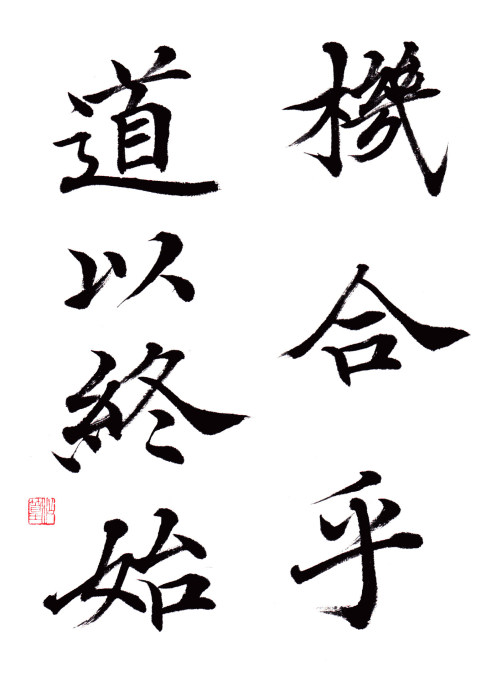 機合乎
道以終始